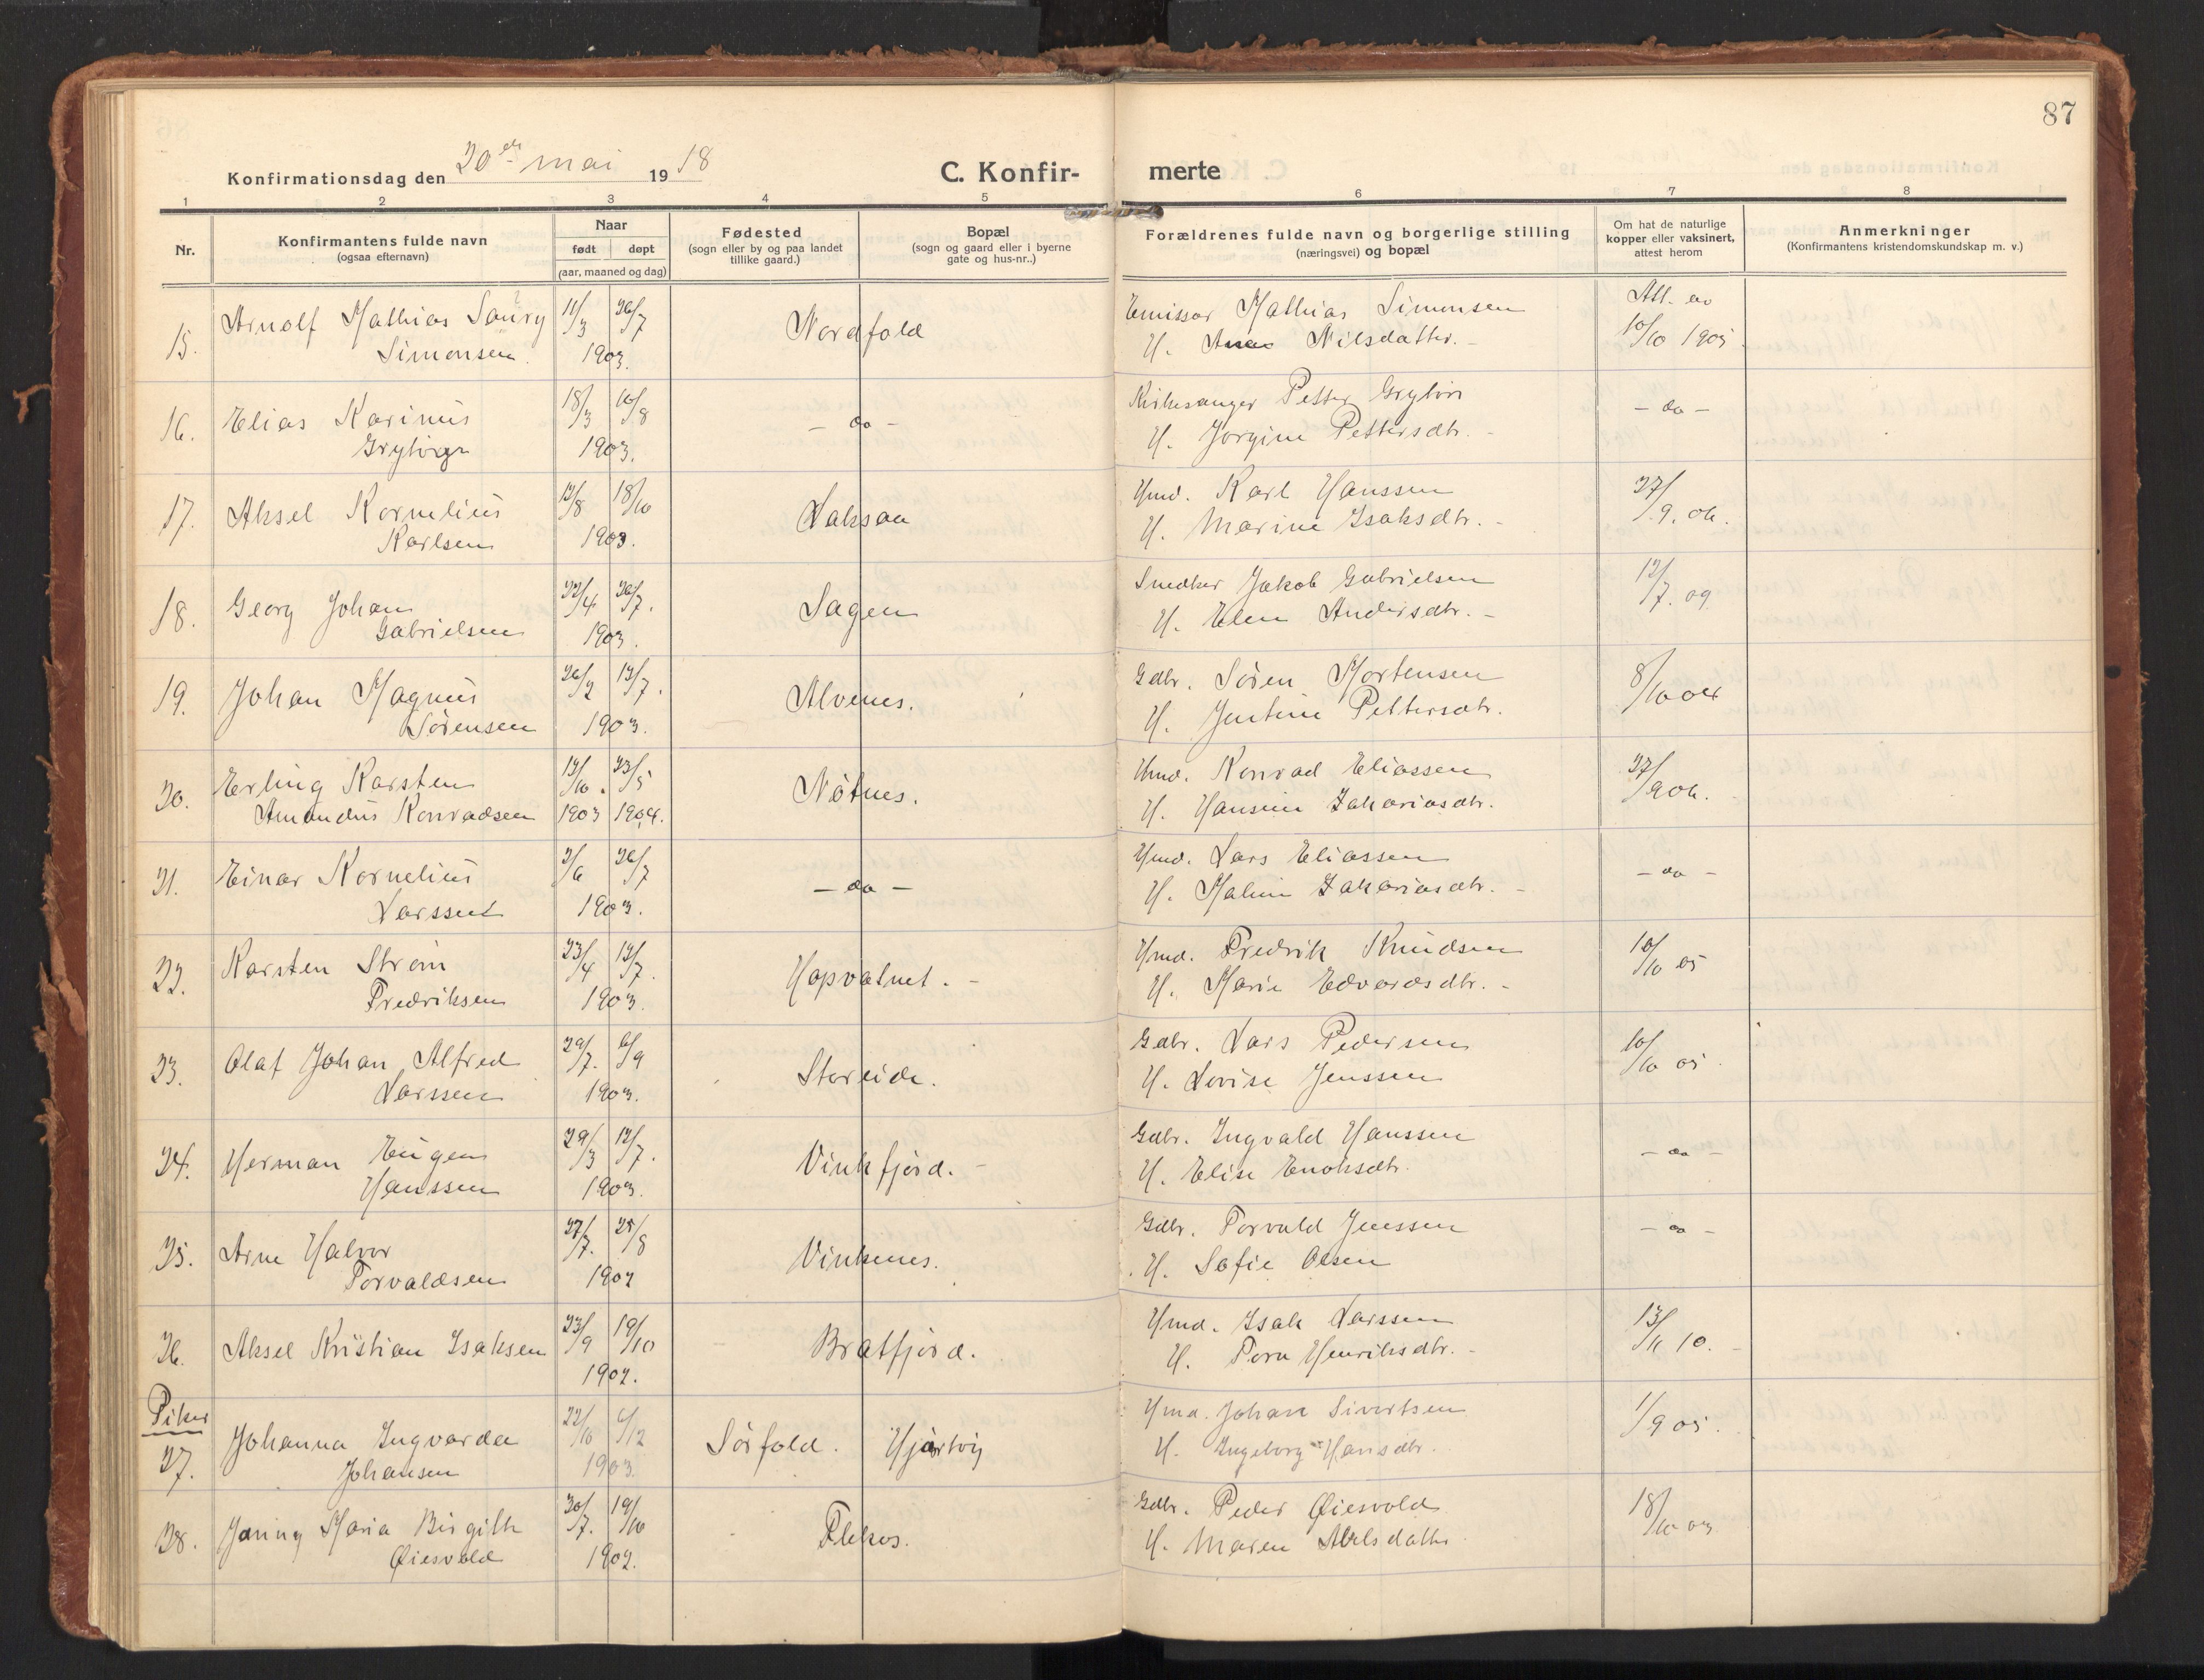 87
Konfirmationsdag den 20de mai 1918
C. Konfir-
merte
1 2 3 4 5 6 7 8
Nr.
Konfirmantens fulde navn
(ogsaa efternavn)
Naar
født døpt
(aar, maaned og dag)
Fødested
(sogn eller by og paa landet
tillike gaard.)
Bopæl
(sogn og gaard eller i byerne
gate og hus-nr..)
Forældrenes fulde navn og borgerlige stilling
(næringsvei) og bopæl
Om hat de naturlige
kopper eller vaksinert,
attest herom
Anmerkninger
(Konfirmantens kristendomskundskap m. v.)
15. Arnolf Mathias 11/3 26/7 Nordfold Emissær Mathias Simonsen Att. av
Simonsen 1903. H. Nilsdatter. 10/10 1905
16. Elias Karinus 18/3 16/8 - do - Kirkesanger Petter
1903. H. Jorgine Pettersdtr. - do -
17. Aksel Kornelius 12/8 18/10 Laksaa Hmd. Karl Hanssen 27/9. 06.
Karlsen 1903. H. Marine Isaksdtr.
18. Georg Johan 22/4 26/7. Sagen Snedker Jakob Gabrielsen 12/7. 09
Gabrielsen 1903. H. Elen Andersdtr.
19. Johan Magnus 26/2 12/7. Alvenes. Gdbr. Søren Mortensen 8/10 04
Sørensen 1903. H. Jentine Pettersdtr.
20. Erling Karsten 12/10. 23/5 Nøtnes. Hmd. Konrad Eliassen 27/9 06.
Amandus Konradsen 1903 1904. H. Hansine Zakariasdtr.
21. Einar Kornelius 2/6 26/7 - do - Hmd. Lars Eliassen - do -
Larssen 1903. H. Maline Zakariasdtr.
22. Karsten Strøm 23/4 12/7. Hopvatnet. Hmd. Fredrik Knudsen 10/10 05
Fredriksen 1903. H. Marie Edvardsdtr.
23. Olaf Johan Alfred 29/7. 6/9 Storeide. Gdbr. Lars Pedersen 10/10 05
Larssen 1903. H. Lovise Jenssen
24. Herman Eugen 29/3 12/7. Vinkfjord. Gdbr. Ingvald Hanssen - do -
Hanssen 1903. H. Elise Enoksdtr.
25. Arne Halvor 27/7. 25/8 Vinkenes. Gdbr. Torvald Jenssen - do -
Torvaldsen 1902 H. Sofie Olsen
26. Aksel Kristian Isaksen 23/9 19/10 Bratfjord. Hmd. Isak Larssen 13/11 10.
1902. H. Tora Henriksdtr.
Piker
27. Johanna Ingvarda 22/10 6/12 Sørfold. Hjortvig Hmd. Johan Sivertsen 1/9 05.
Johansen 1903. H. Ingeborg Hansdtr.
28. Janny Maria Birgitte 30/7. 19/10 Flekos. Gdbr. Peder Øiesvold 18/10 03
Øiesvold 1902. H. Maren Abelsdatter